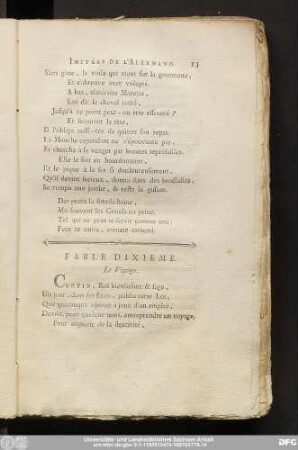 IMITÉES DE L'ALLEMAND. 13
Sans gêne, la voilà qui vient sur la gourmette,
Et s'abreuve avec volupté.
A bas, téméraire Musette,
Lui dit le cheval irrité,
Jusqu'à ce point peut-on être effronté ?
Et secouant la tête,
Il l'oblige aussi-tôt de quitter son repas.
La Mouche cependant ne s'épouvante pas,
Et cherche à se venger par bonnes représailles.
Elle le suit en bourdonnant,
Et le pique à la fin si douloureusement,
Qu'il devint furieux, donna dans des broussailles,
Se rompit une jambe, & resta là gissant.
Des petits la sourde haine,
Met souvent les Grands en peine.
Tel qui ne peut te servir comme ami,
Peut te nuire, comme ennemi.
FABLE DIXIEME.
Le Voyage.
CERTIN, Roi bienfaisant & sage,
Un jour, dans ses Etats, publia cette Loi,
Que quiconque aspirant à jouir d'un emploi,
Devroit, pour quelque tems, entreprendre un voyage,
Pour acquérir de la dextérité,
Universitäts- und Landesbibliothek Sachsen-Anhalt